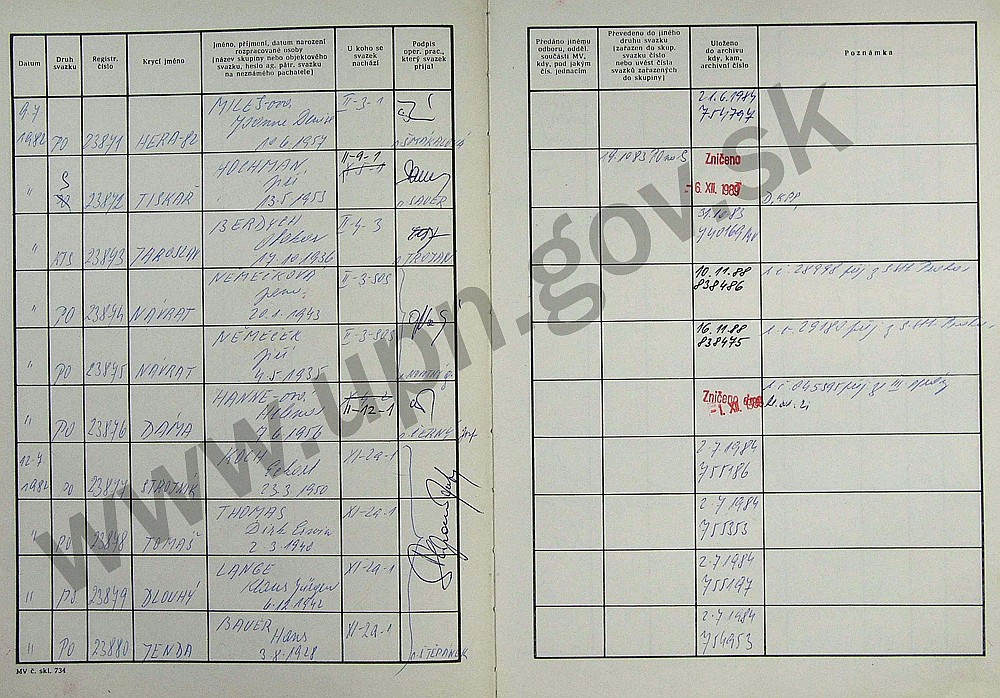 Datum
Druh svazku
Registr. číslo
Krycí jméno
Jméno, příjmení, datum narození
rozpracované osoby
(název skupiny nebo objektového
svazku, heslo ag. pátr. svazku
na neznámého pachatele)
U koho se
svazek
nachází
Podpis
oper. prac.,
který svazek
přijal
Předáno jinému
odboru, odděl.
součásti MV,
kdy, pod jakým
čís. jednacím
Převedeno do jiného
druhu svazku
(zařazen do skup.
svazku číslo
nebo uvést čísla
svazků zařazených
do skupiny)
Uloženo
do archivu
kdy, kam,
archivní číslo
Poznámka
9.7
1982 PO 23871 HERA-82
MILES-ová
Yvonne Denise
10.6.1957
II-3-1
p. ŠMAKALOVÁ
21.6.1984
754797
" S 23872 TISKAŘ
HOCHMAN
Jiří
13.5.1953
II-9-1
X-5-1
p. SAUER
19.10.83
Zničeno
- 6. XII. 1989
" KTS 23873 JAROSLAV
BERDYCH
Otakar
17.10.1936
II-4-3
31.10.83
" PO 23874 NÁVRAT
NĚMEČKOVÁ
Jana
20.1.1943
II-3-SOS
10.11.88
838486
" PO 23875 NÁVRAT
NĚMEČEK
Jiří
4.5.1935
II-3-SOS
p. NOVOTNÝ
16.11.88
838475
" PO 23876 DÁMA
HANNE-ová
Helena
7.6.1956
II-12-1
p. ČERNÝ
Zničeno dne
- 1. XII. 1989
12.7
1982 PO 23877
KOCH
Eckert
23.3.1950
XI-2a-1
2.7.1984
755186
" PO 23878 TOMAŠ
THOMAS
Dirk Erwin
2.3.1940
XI-2a-1
2.7.1984
755353
" PO 23879 DLOUHÝ
LANGE
Klaus Jürgen
6.12.1942
XI-2a-1
2.7.1984
755197
" PO 23880 JENDA
BAUER
Hans
3.8.1928
XI-2a-1
p. ŠTĚPÁNEK
2.7.1984
754953
MV č. skl. 734
www.upn.gov.sk